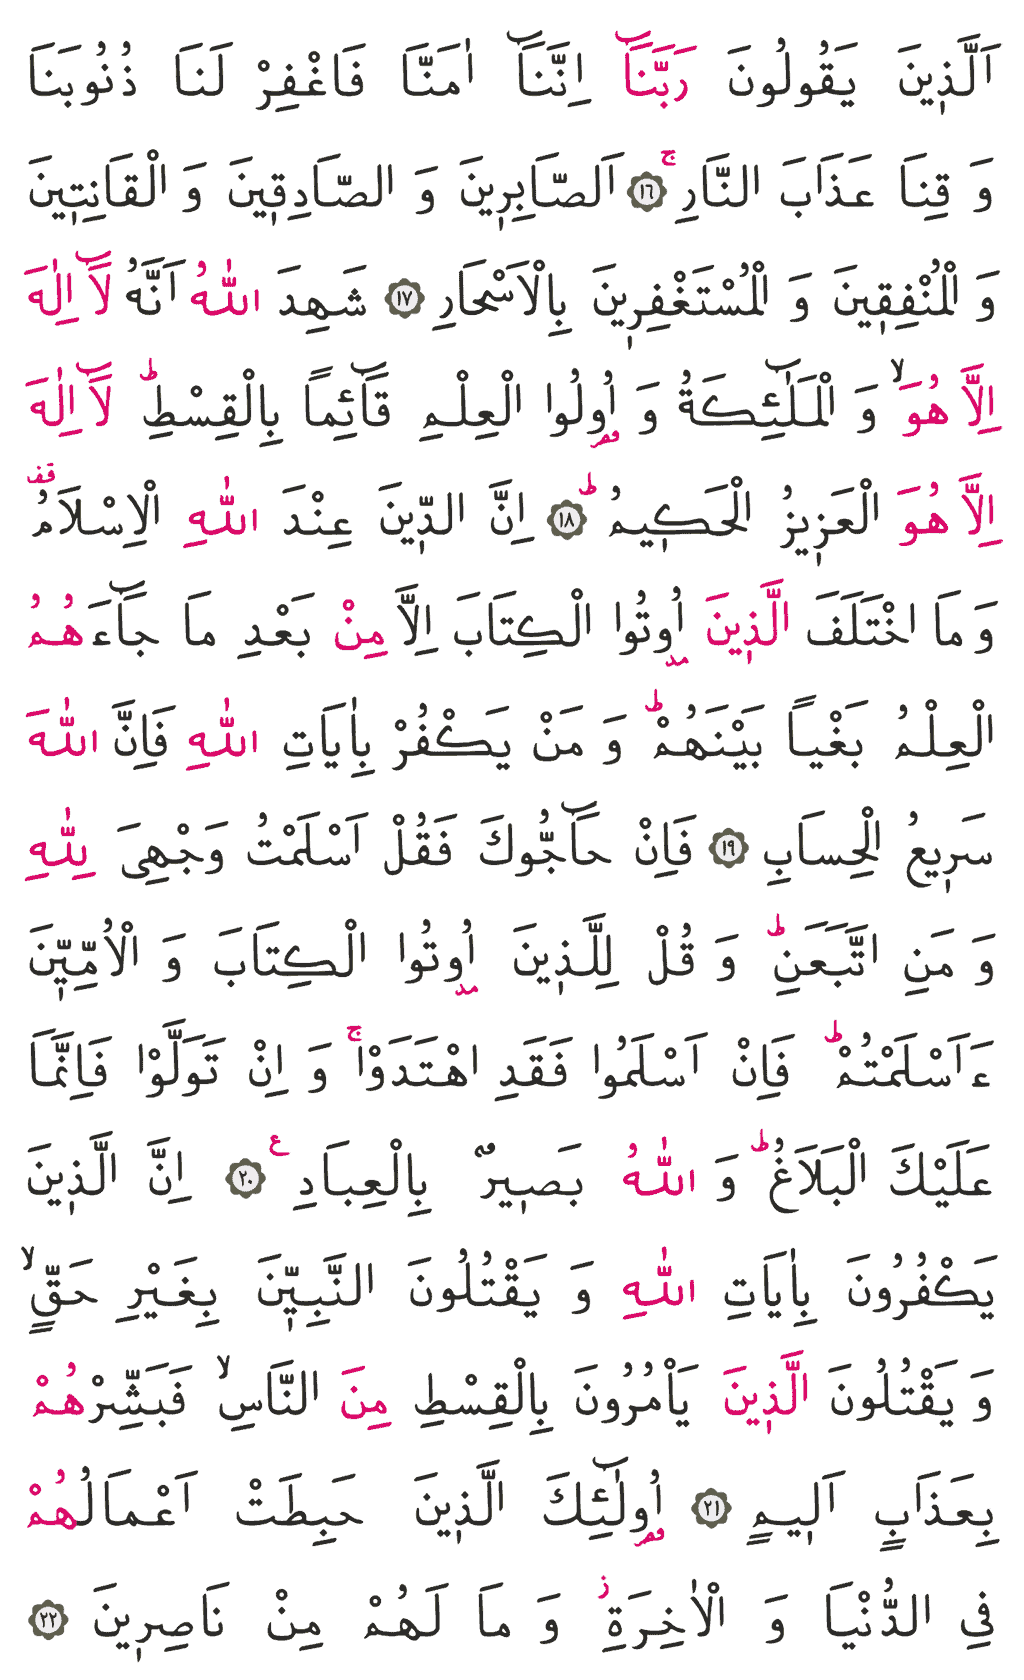 اَلَّذ۪ينَ يَقُولُونَ رَبَّنَٓا اِنَّنَٓا اٰمَنَّا فَاغْفِرْ لَنَا ذُنُوبَنَا
وَ قِنَا عَذَابَ النَّارِۚ ﴿١٦﴾ اَلصَّابِر۪ينَ وَ الصَّادِق۪ينَ وَ الْقَانِت۪ينَ
وَ الْمُنْفِق۪ينَ وَ الْمُسْتَغْفِر۪ينَ بِالْاَسْحَارِ ﴿١٧﴾ شَهِدَ اللّٰهُ اَنَّهُ لَٓا اِلٰهَ
اِلَّا هُوَۙ وَ الْمَلٰٓئِكَةُ وَ اُو۬لُوا الْعِلْمِ قَٓائِماً بِالْقِسْطِۜ لَٓا اِلٰهَ
اِلَّا هُوَ الْعَز۪يزُ الْحَك۪يمُۜ ﴿١٨﴾ اِنَّ الدّ۪ينَ عِنْدَ اللّٰهِ الْاِسْلَامُ۠
وَ مَا اخْتَلَفَ الَّذ۪ينَ اُو۫تُوا الْكِتَابَ اِلَّا مِنْ بَعْدِ مَا جَٓاءَهُمُ
الْعِلْمُ بَغْياً بَيْنَهُمْۜ وَ مَنْ يَكْفُرْ بِاٰيَاتِ اللّٰهِ فَاِنَّ اللّٰهَ
سَر۪يعُ الْحِسَابِ ﴿١٩﴾ فَاِنْ حَٓاجُّوكَ فَقُلْ اَسْلَمْتُ وَجْهِىَ لِلّٰهِ
وَ مَنِ اتَّبَعَنِۜ وَ قُلْ لِلَّذ۪ينَ اُو۫تُوا الْكِتَابَ وَ الْاُمِّيّ۪نَ
ءَاَسْلَمْتُمْۜ فَاِنْ اَسْلَمُوا فَقَدِ اهْتَدَوْاۚ وَ اِنْ تَوَلَّوْا فَاِنَّمَا
عَلَيْكَ الْبَلَاغُۜ وَ اللّٰهُ بَص۪يرٌ بِالْعِبَادِ۟ ﴿٢٠﴾ اِنَّ الَّذ۪ينَ
يَكْفُرُونَ بِاٰيَاتِ اللّٰهِ وَ يَقْتُلُونَ النَّبِيّ۪نَ بِغَيْرِ حَقٍّۙ
وَ يَقْتُلُونَ الَّذ۪ينَ يَأْمُرُونَ بِالْقِسْطِ مِنَ النَّاسِۙ فَبَشِّرْهُمْ
بِعَذَابٍ اَل۪يمٍ ﴿٢١﴾ اُو۬لٰٓئِكَ الَّذ۪ينَ حَبِطَتْ اَعْمَالُهُمْ
فِي الدُّنْيَا وَ الْاٰخِرَةِۘ وَ مَا لَهُمْ مِنْ نَاصِر۪ينَ ﴿٢٢﴾